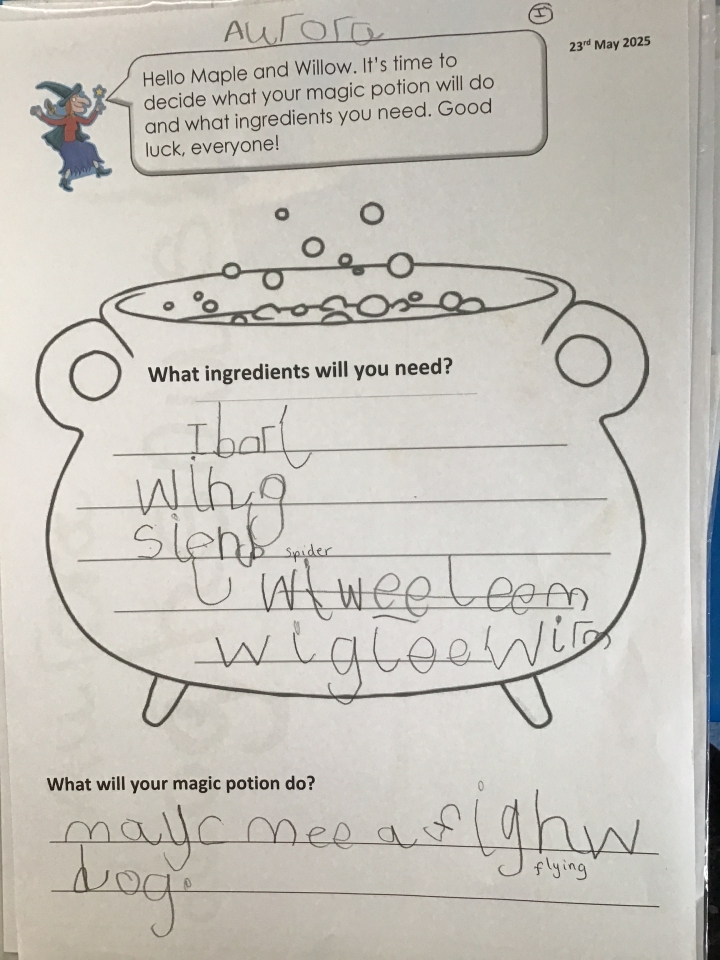 Aurora
I
23rd May 2025
Hello Maple and Willow. It's time to
decide what your magic potion will do
and what ingredients you need. Good
luck, everyone!
What ingredients will you need?
I bat
wing
spider
wigleewirm
What will your magic potion do?
mayc mee a
flying
dog.